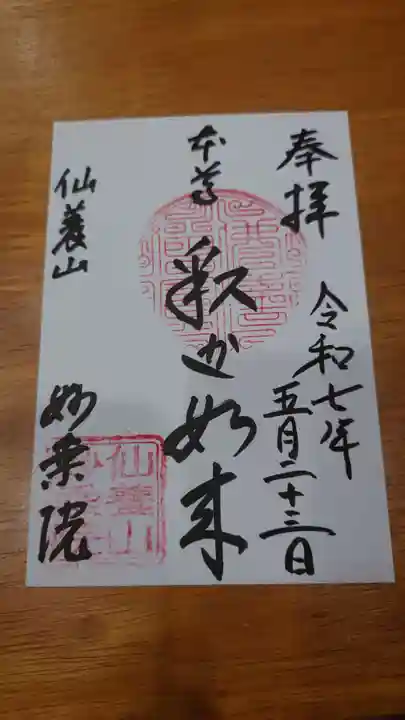 奉拝
令和七年
五月二十三日
本尊
釈迦如来
仙養山
妙乗院